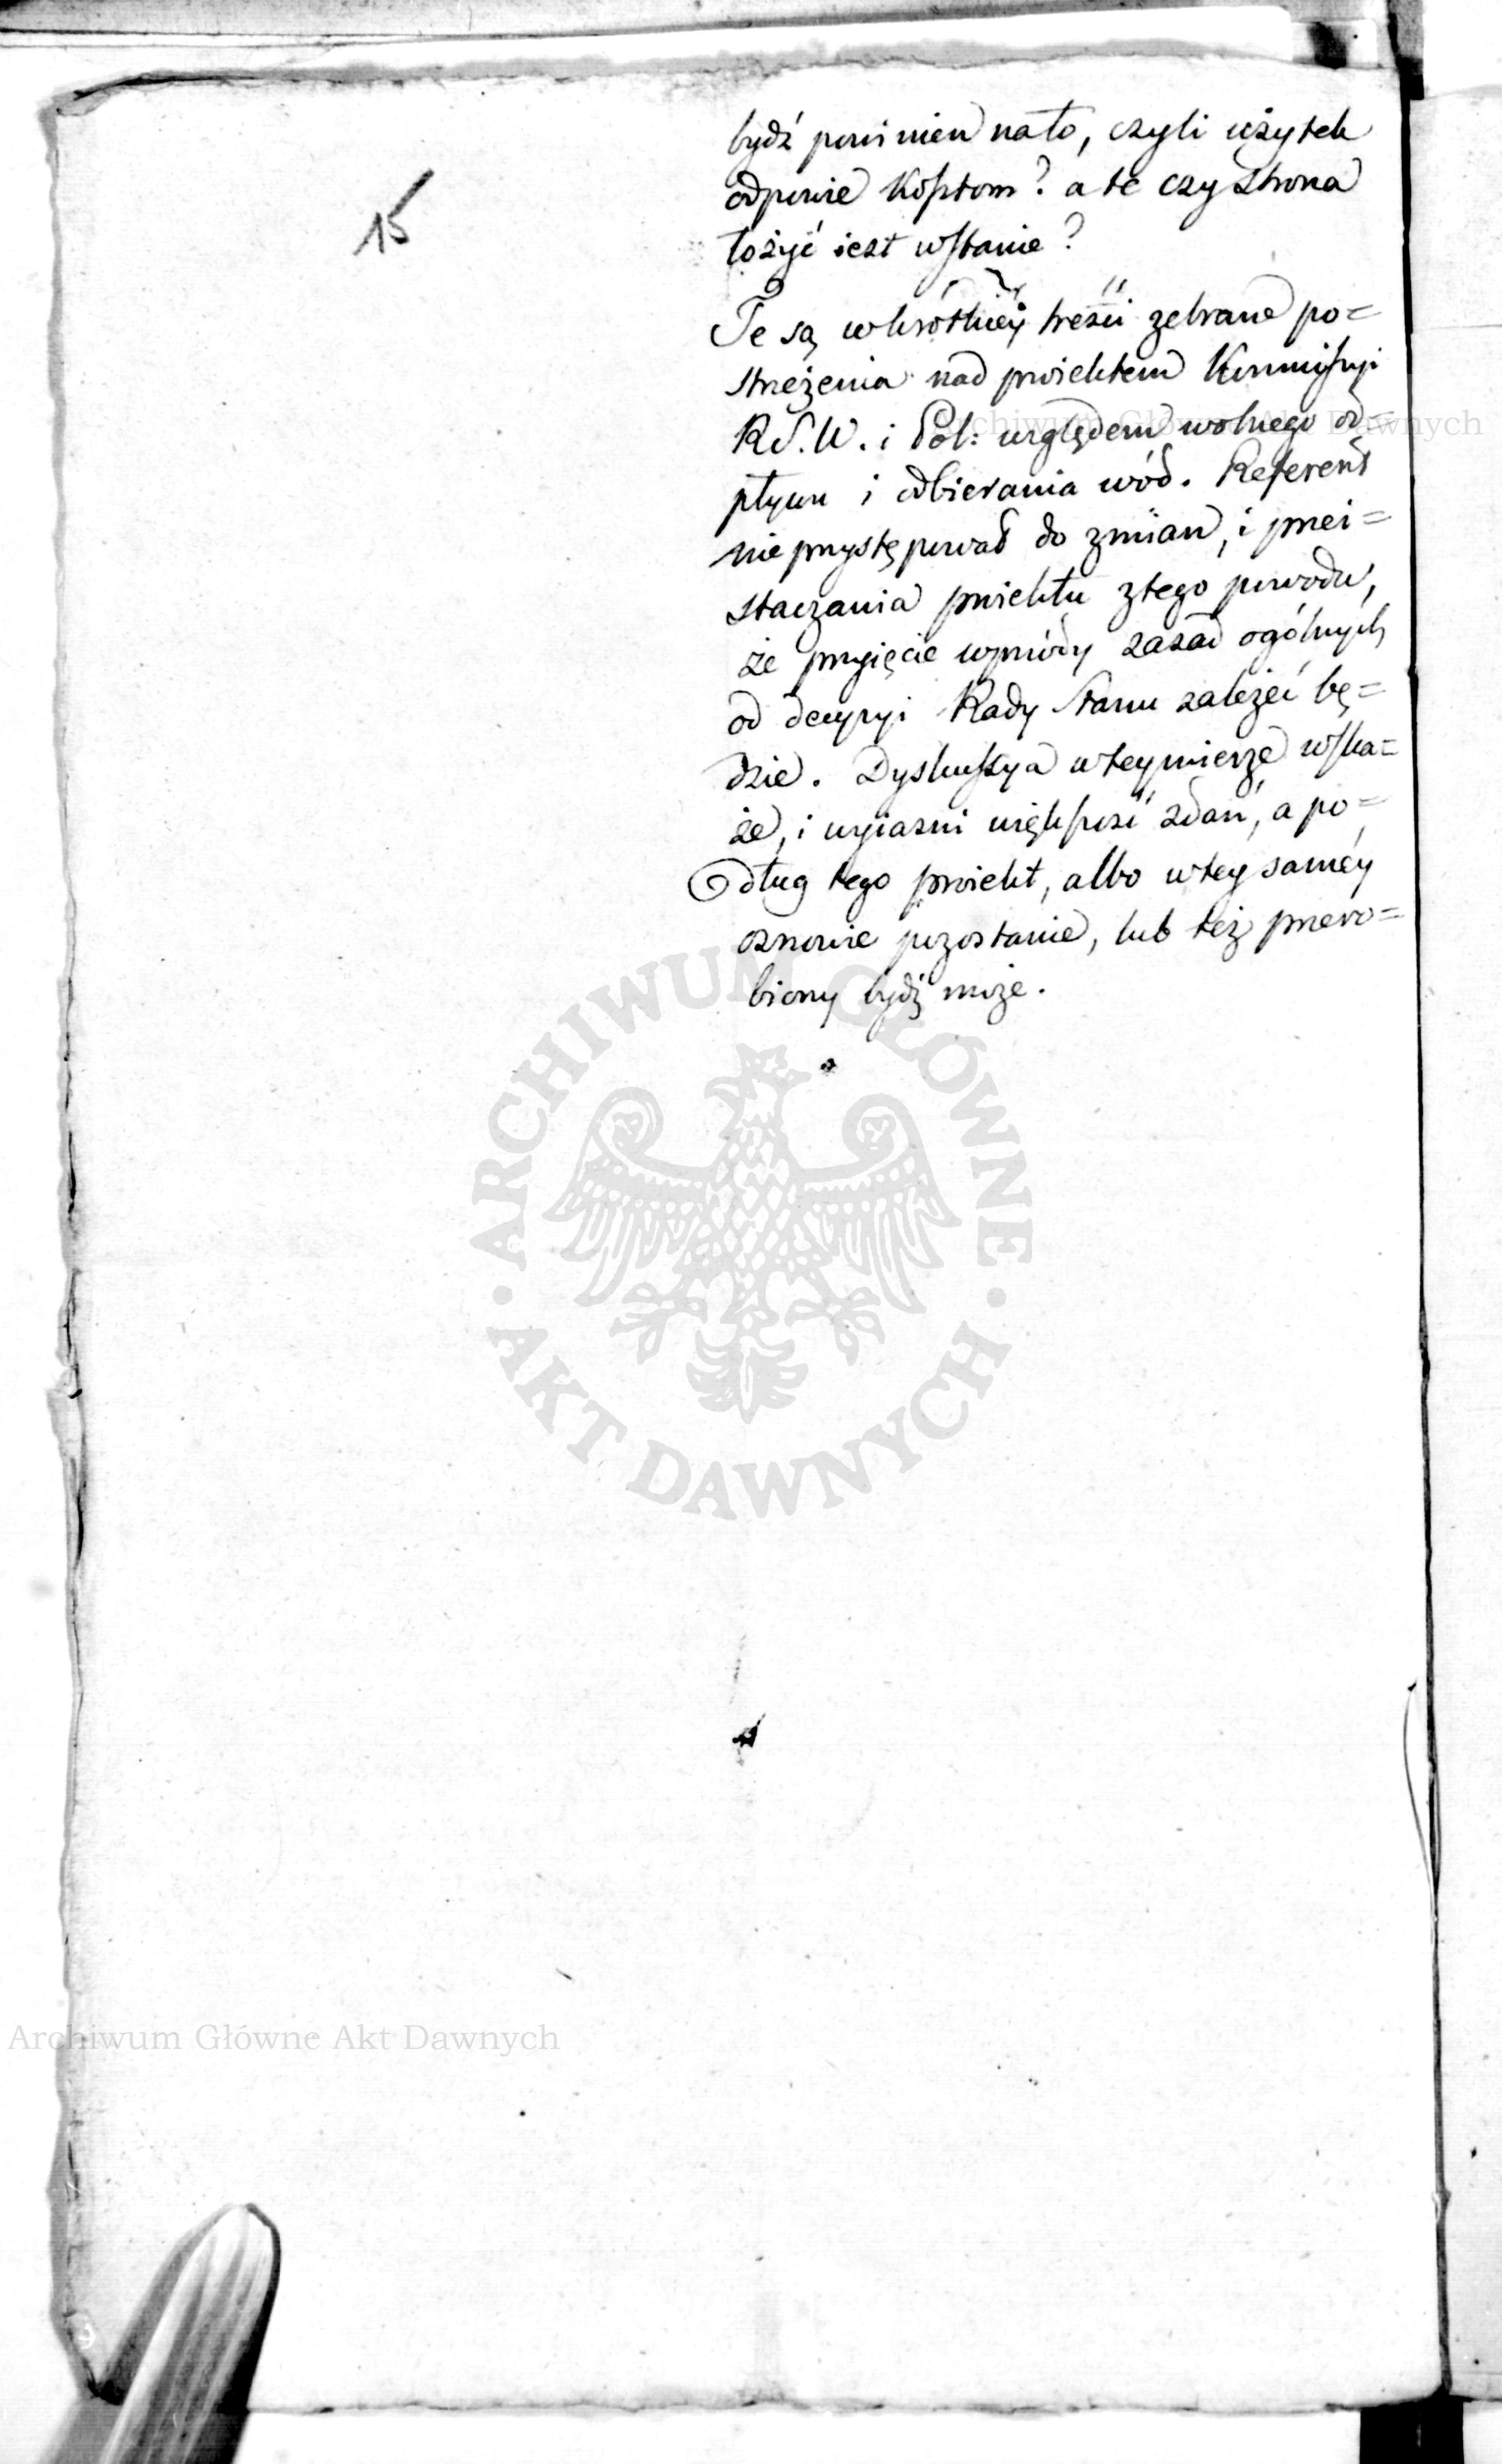 15
bydź powinien nato, czyli użytek
odpowie kosztom? a te czy strona
łożyć iest wstanie?
Te są wkrótkiéy treści zebrane po=
strzeżenia nad proiektem Kommissyi
R.S.W. i Pol: względem wolnego od=
pływu i odbierania wód. Referent
nie przystępował do zmian, i przei=
staczania proiektu ztego powodu,
że przyięcie wprzódy zasad ogólnych
od decyzyi Rady Stanu zależeć bę=
dzie. Dyskussya wteymierze wska=
że, i wyiaśni większość zdań, a po=
dług tego proiekt, albo wtey saméy
osnowie pozostanie, lub też przero=
biony bydź może.
Archiwum Główne Akt Dawnych
ARCHIWUM GŁÓWNE
AKT DAWNYCH
Archiwum Główne Akt Dawnych